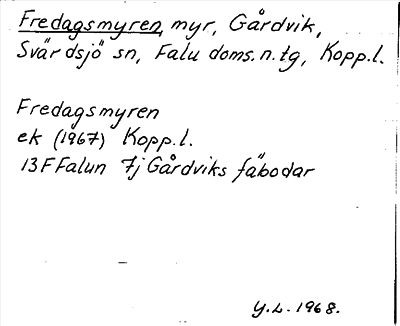 Fredagsmyren, myr, Gårdvik,
Svärdsjö sn, Falu doms.n.tg, Kopp.l.
Fredagsmyren
ek (1967) Kopp.l.
13F Falun 7j Gårdviks fäbodar
Y.L. 1968.